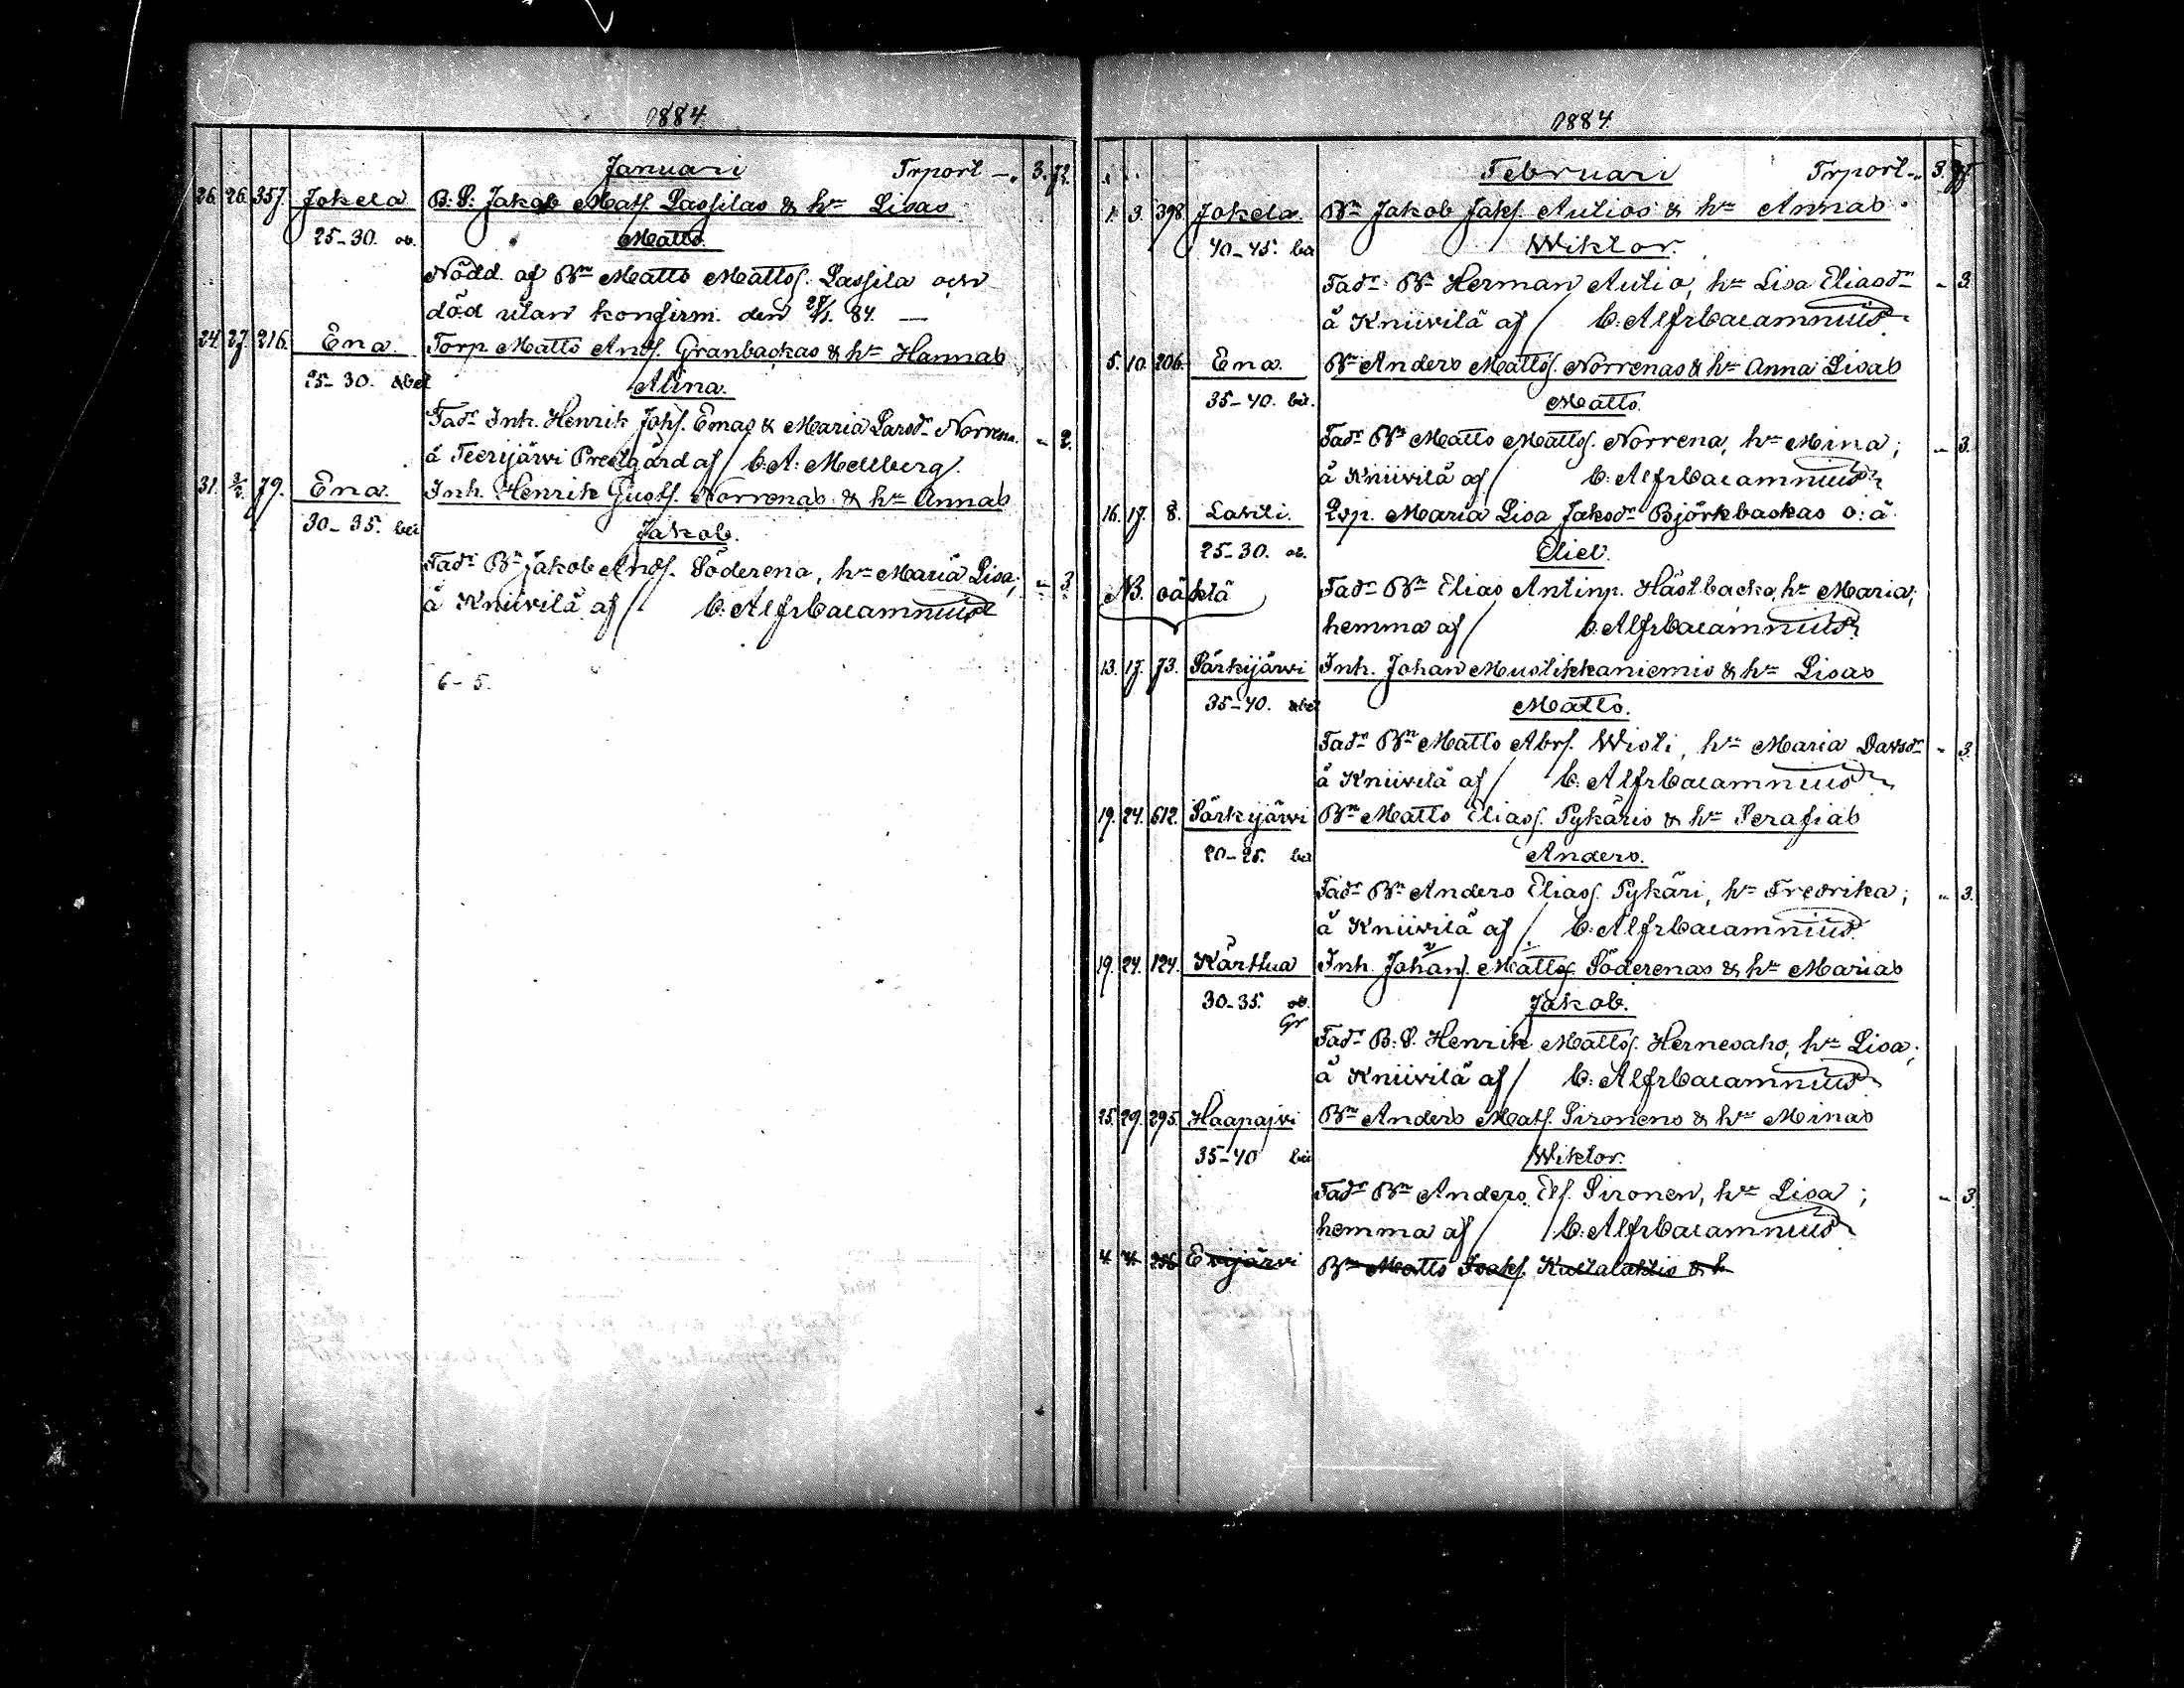 1884.
Januari Trport -. 3. 72.
26. 26. 357. Jokela B. S. Jakob Matss. Lassilas & hu Lisas
25-30. ob. Matts.
Nödd. af Bn Matts Mattss. Lassila och
död utan konfirm. den 28/1. 84. —
24. 27. 216. Ena. Torp. Matts Ands. Granbackas & hu Hannas
25-30. Alina.
Fadr Inh. Henrik Johs. Emas & Maria Larsdr Norrena. " 2.
á Teerijärvi Prestgård af / C. A. Mellberg.
31. 3/2. 79. Ena. Inh. Henrik Gusts. Norrenas & hu Annas
30-35. bei Jakob.
Fadr Bn Jakob Ands. Söderena, hu Maria Lisa; " 3.
á Kniivilä af / C. Alfr Cajamnius
6-5.
1884.
Februari Trport " 3.
1. 3. 398. Jokela. Bn Jakob Jaks. Autios & hu Annas.
40-45. bei Wiktor.
Fadr Bn Herman Autio, hu Lisa Eliasdr " 3.
á Kniivilä af / C. Alfr Cajamnius
5. 10. 206. Ena. Bn Anders Mattss. Norrenas & hu Anna Lisas
35-40. bei. Matts.
Fadr Bn Matts Mattss. Norrena, hu Mina; " 3.
á Kniivilä af / C. Alfr Cajamnius
16. 17. 8. Lasili. Maria Lisa Jaksdr Björkbackas o: ä
25-30. ob. Eliel.
NB. oäkta Fadr Bn Elias Antinp. Hästbacka, hu Maria;
hemma af / C. Alfr Cajamnius
13. 17. 73. Särkijärvi Inh. Johan Mustikkaniemis & hu Lisas
35-40. Matts.
Fadr Bn Matts Abrs. Wisti, hu Maria Davsdr " 3.
á Kniivilä af / C. Alfr Cajamnius
19. 24. 612. Särkijärvi Bn Matts Eliass. Pykäris & hu Serafias
20-25. bei Anders.
Fadr Bn Anders Eliass. Pykäri, hu Fredrika; " 3.
á Kniivilä af / C. Alfr Cajamnius
19. 24. 124. Kärttua Inh. Johan Mattss. Söderenas & hu Marias
30-35. ob. Jakob.
Gr
Fadr B. S. Henrik Mattss. Hernesaho, hu Lisa;
á Kniivilä af / C. Alfr Cajamnius
25. 29. 295. Haapajvi Bn Anders Mats. Sironens & hu Minas
35-40 bei Wiktor.
Fadr Bn Anders Els. Sironen, hu Lisa; " 3.
hemma af / C. Alfr Cajamnius
4 Evijärvi Bn Matts